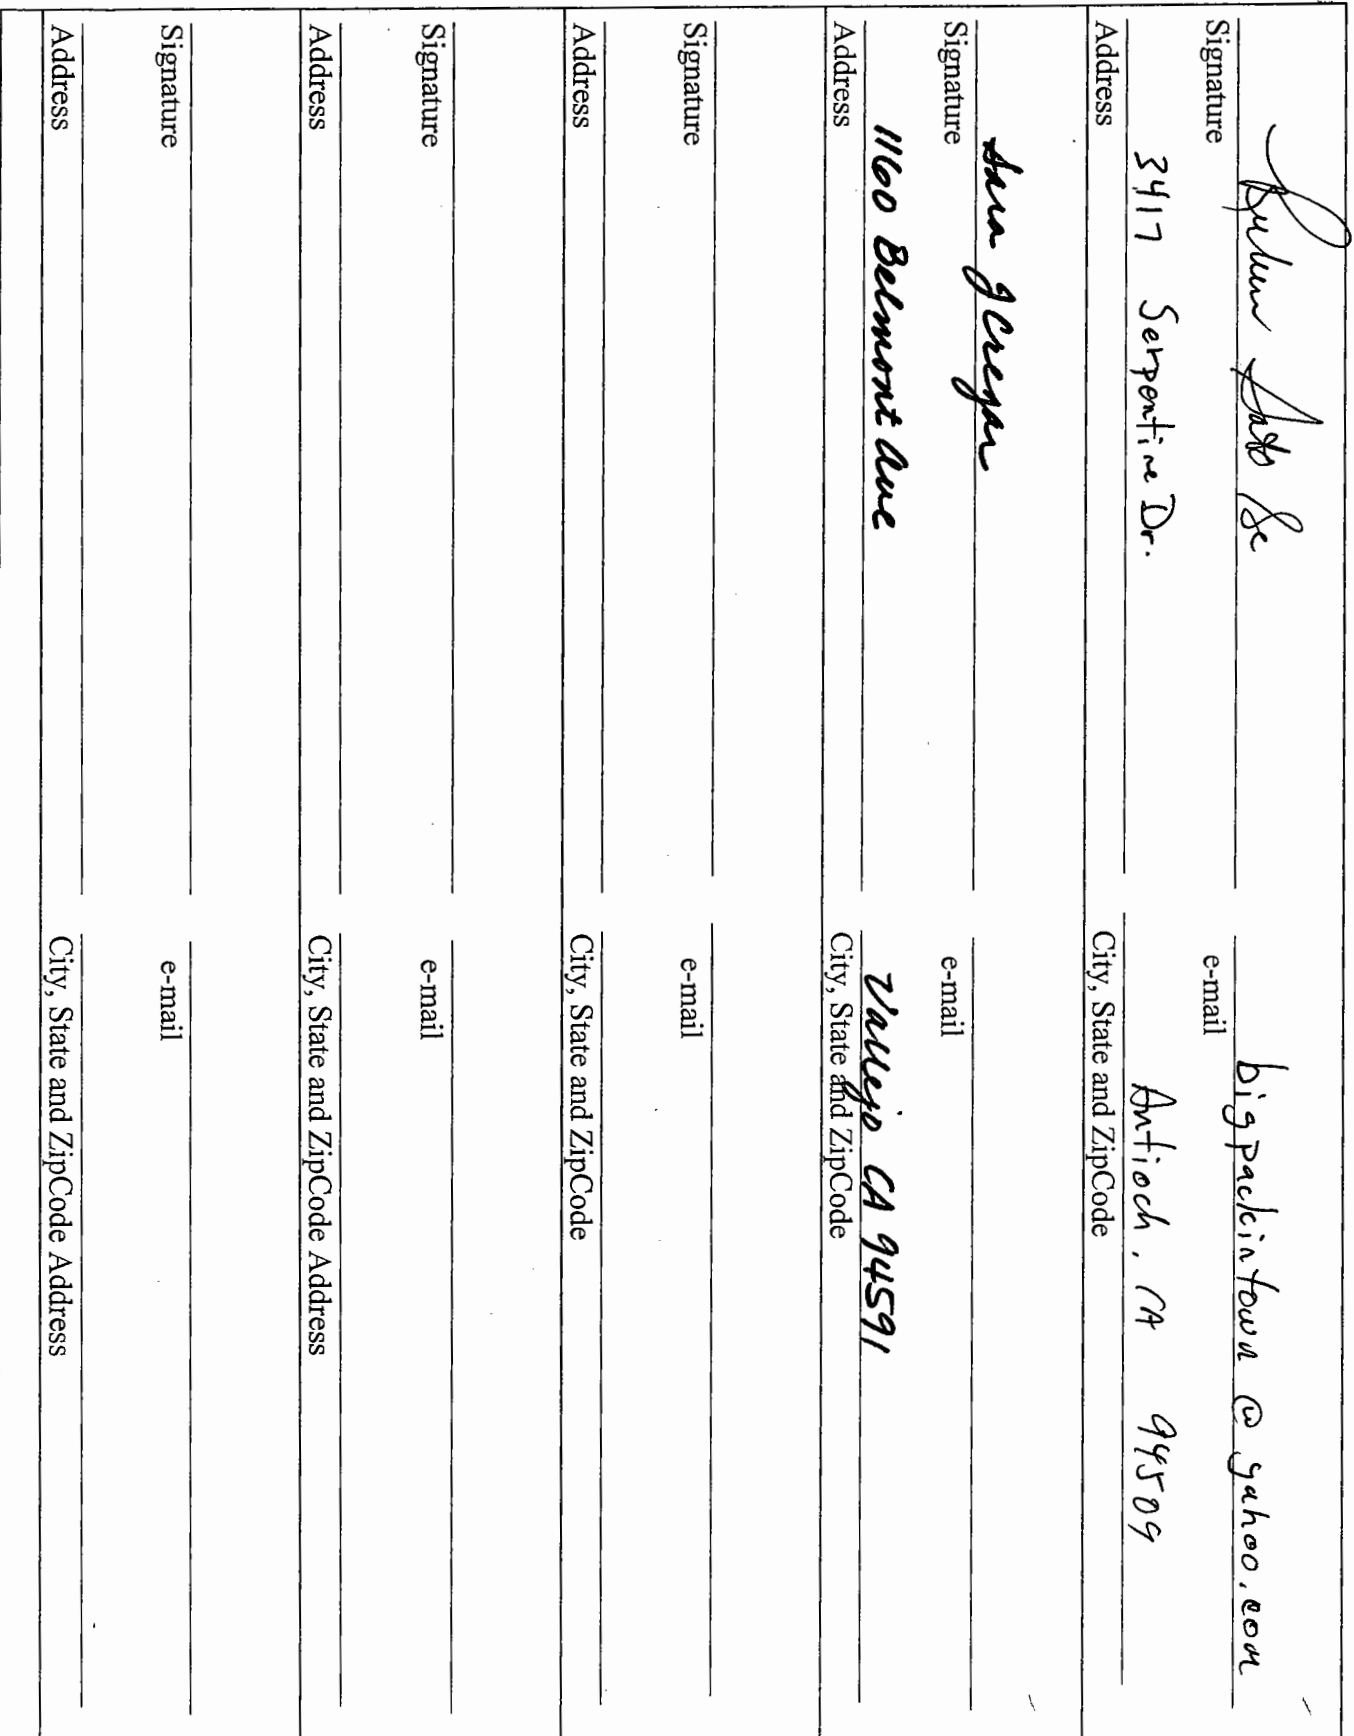 Ruben Soto Sr bigpackintown @ yahoo.com
Signature e-mail
3417 Serpentine Dr. Antioch, CA 94509
Address City, State and ZipCode
Sara J Cregan
Signature e-mail
1160 Belmont Ave Vallejo CA 94591
Address City, State and ZipCode
Signature e-mail
Address City, State and ZipCode
Signature e-mail
Address City, State and ZipCode Address
Signature e-mail
Address City, State and ZipCode Address